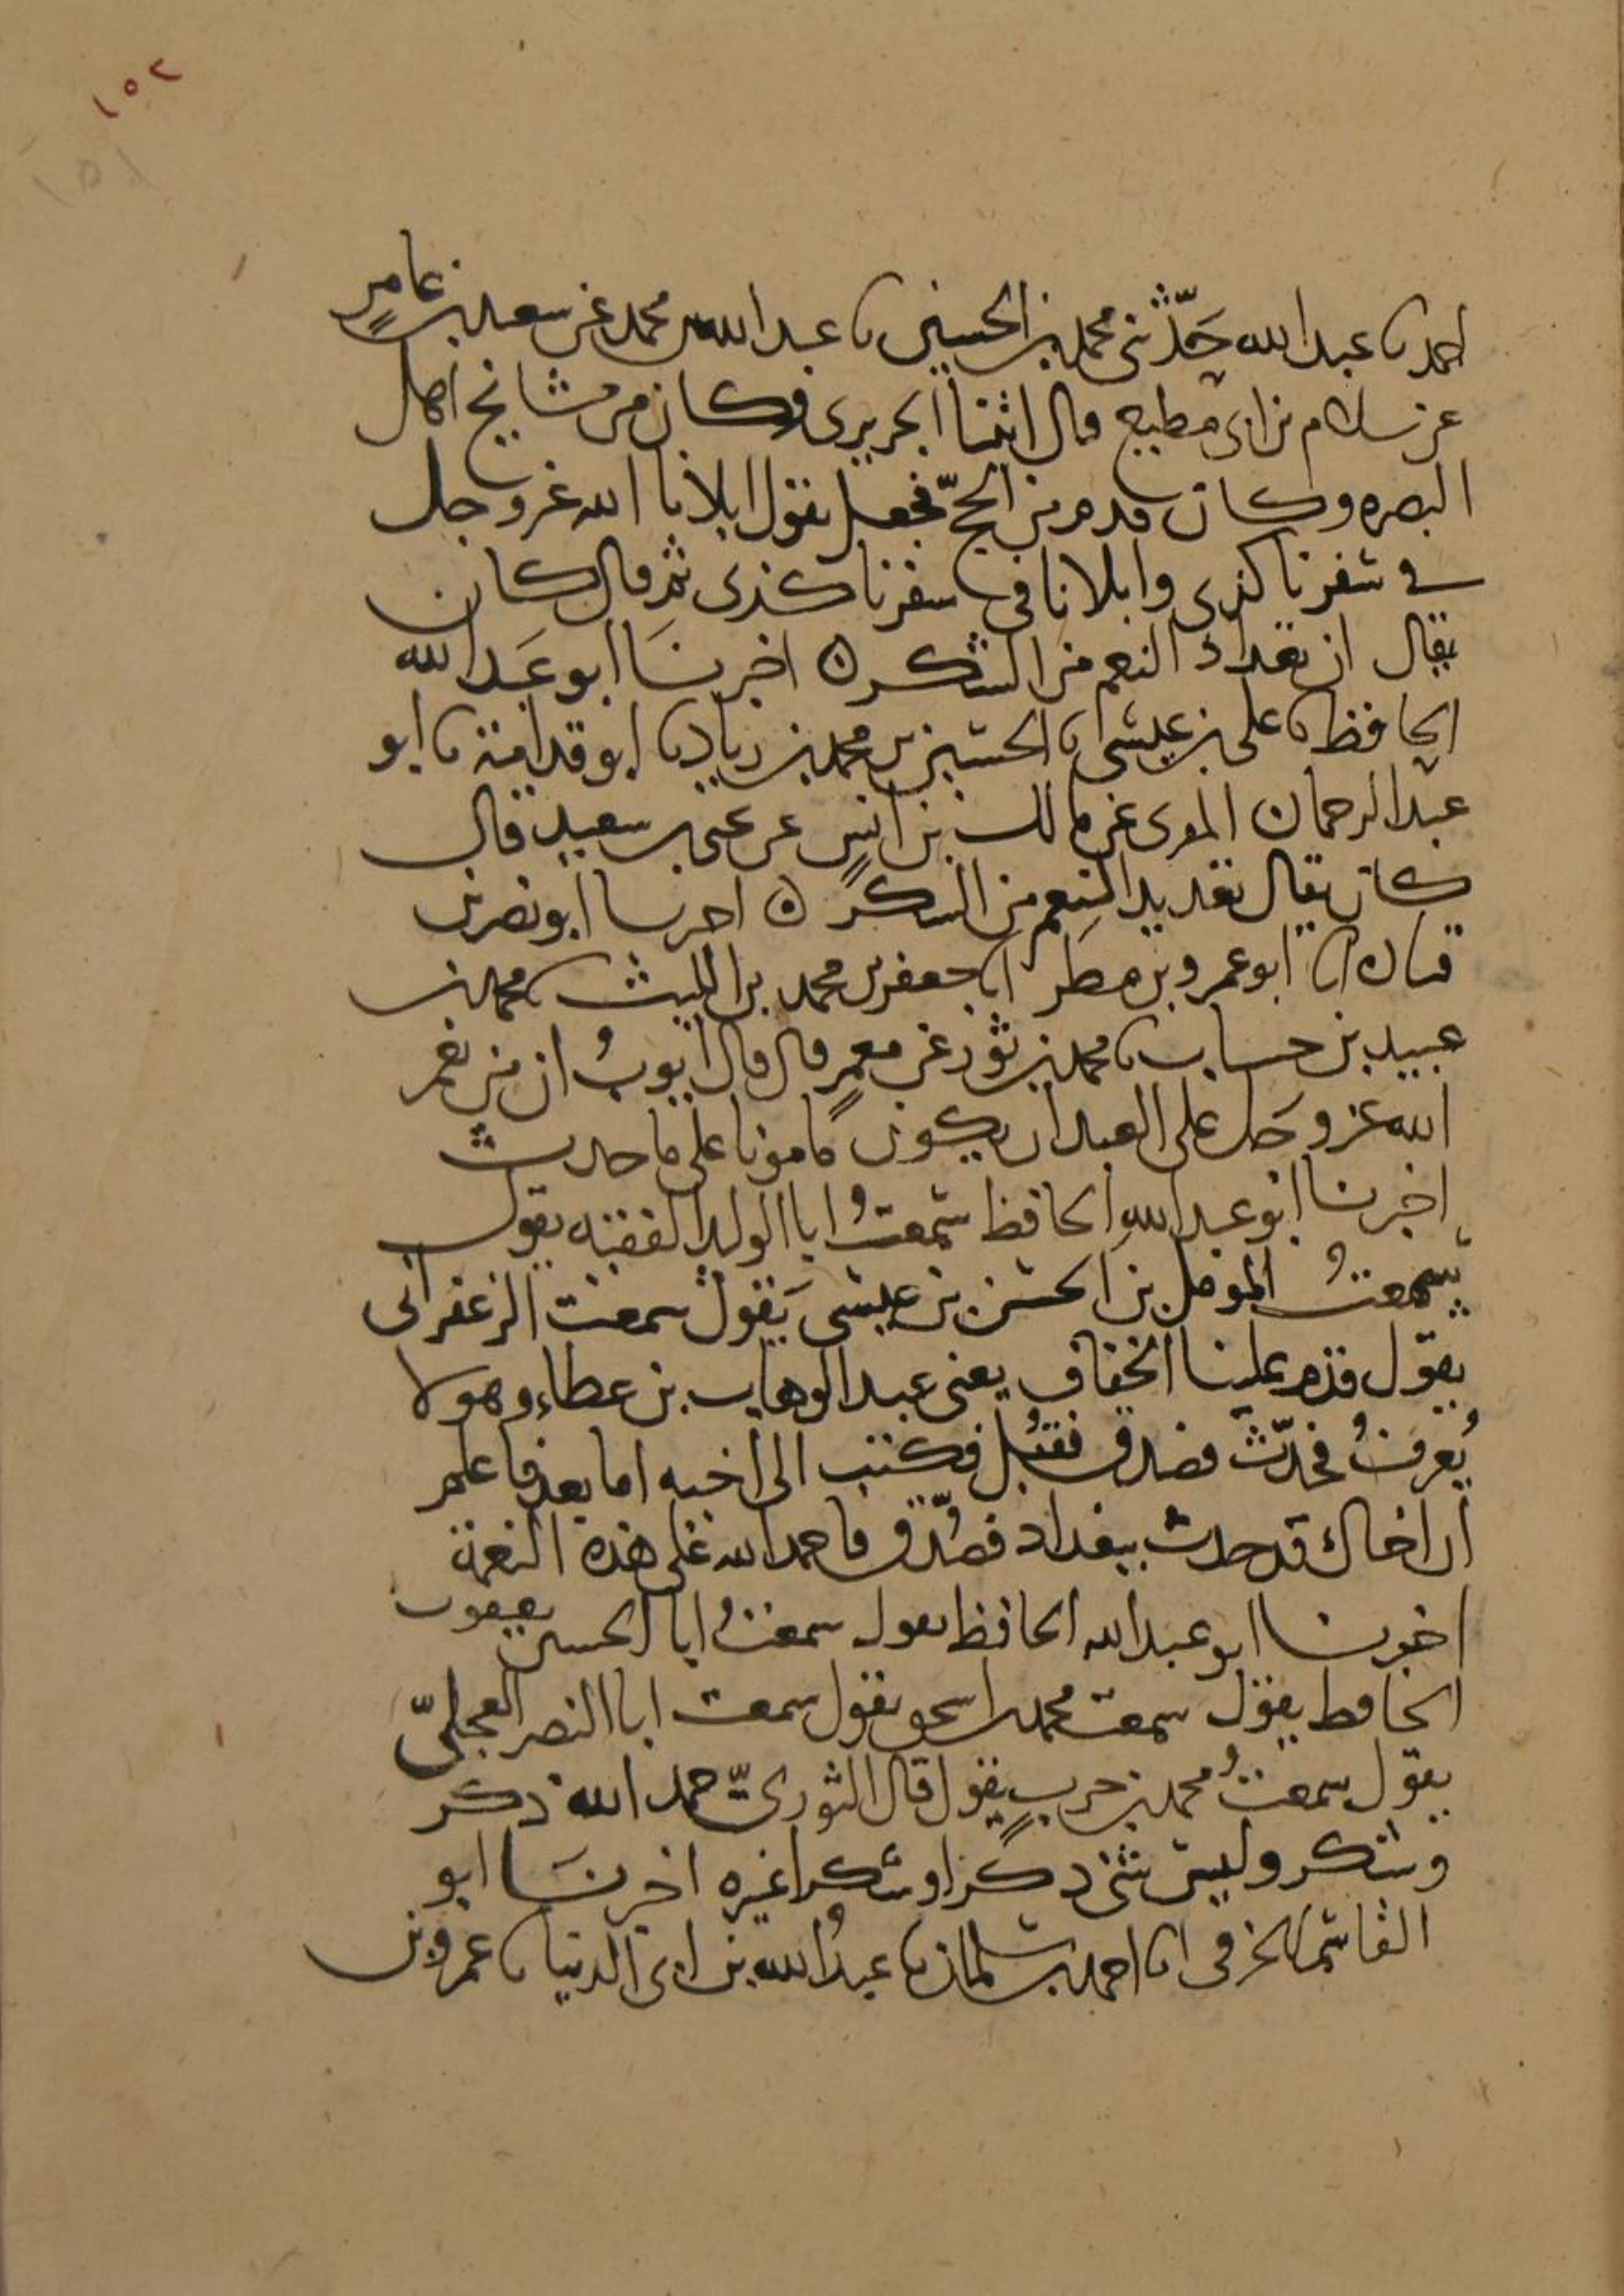 ١٥٢
١٥١
احمد نا عبد الله حَدّثني محمد بن الحسين نا عبد الله بن محمد عن سعيد بن عامرٍ
عن سلام بن ابي مطيع قال اتينا الجريري وكان من مشايخ اهل
البصره وكان قدم من الحجّ فجعل يقول ابلانا الله عز وجل
في سفرنا كذى وابلانا في سفرنا كذى ثم قال كان
يقال ان تعداد النعم من الشكر ه اخبرنَا ابو عَبد الله
الحافظ نا علي بن عيسى نا الحسين بن محمد بن زياد نا ابو قدامة نا ابو
عبد الرحمان المقرى عن مالك بن انسٍ عن يحيى بن سعيد قال
كان يقال تعديد النِعم من الشكر ه اخبرنا ابو نصر بن
قتاده انا ابو عمرو بن مطَر انا جعفر بن محمد بن الليث نا محمد بن
عبيد بن حساب نا محمد بن ثور عن معمرٍ قال قال ايوبُ ان من نعم
الله عز وجَل على العبد ان يكون مامونا على ما حدث
اخبرنا ابو عبد اللهِ الحافظ سمعتُ ابا الوليد الفقيه يقول
سمعتُ المومل بن الحسن بن عيسى يَقول سمعت الزعفراني
يقول قدم علينا الخفاف يعني عبد الوهاب بن عطاء وهو لا
يُعرفُ فحدّث فصدق فقُبل فكتب الى اخيه اما بعد فاعلم
ان اخاك قد حدث ببغداد فصُدّق فاحمد الله على هذه النعمة
اخبرنا ابو عبد الله الحافظ يقول سمعتُ ابا الحسين يعقوب
الحافظ يقول سمعت محمد بن اسحق يقول سمعت ابا النصر العجليّ
يقول سمعتُ محمد بن حربٍ يقول قال الثوريّ حمد الله ذكر
وشكر وليس شئ ذكرا وشكرا غيره اخبرنَا ابو
القاسم الخرقي انا احمد بن سلمان نا عبدُ الله بن ابي الدنيا نا عمرو بن